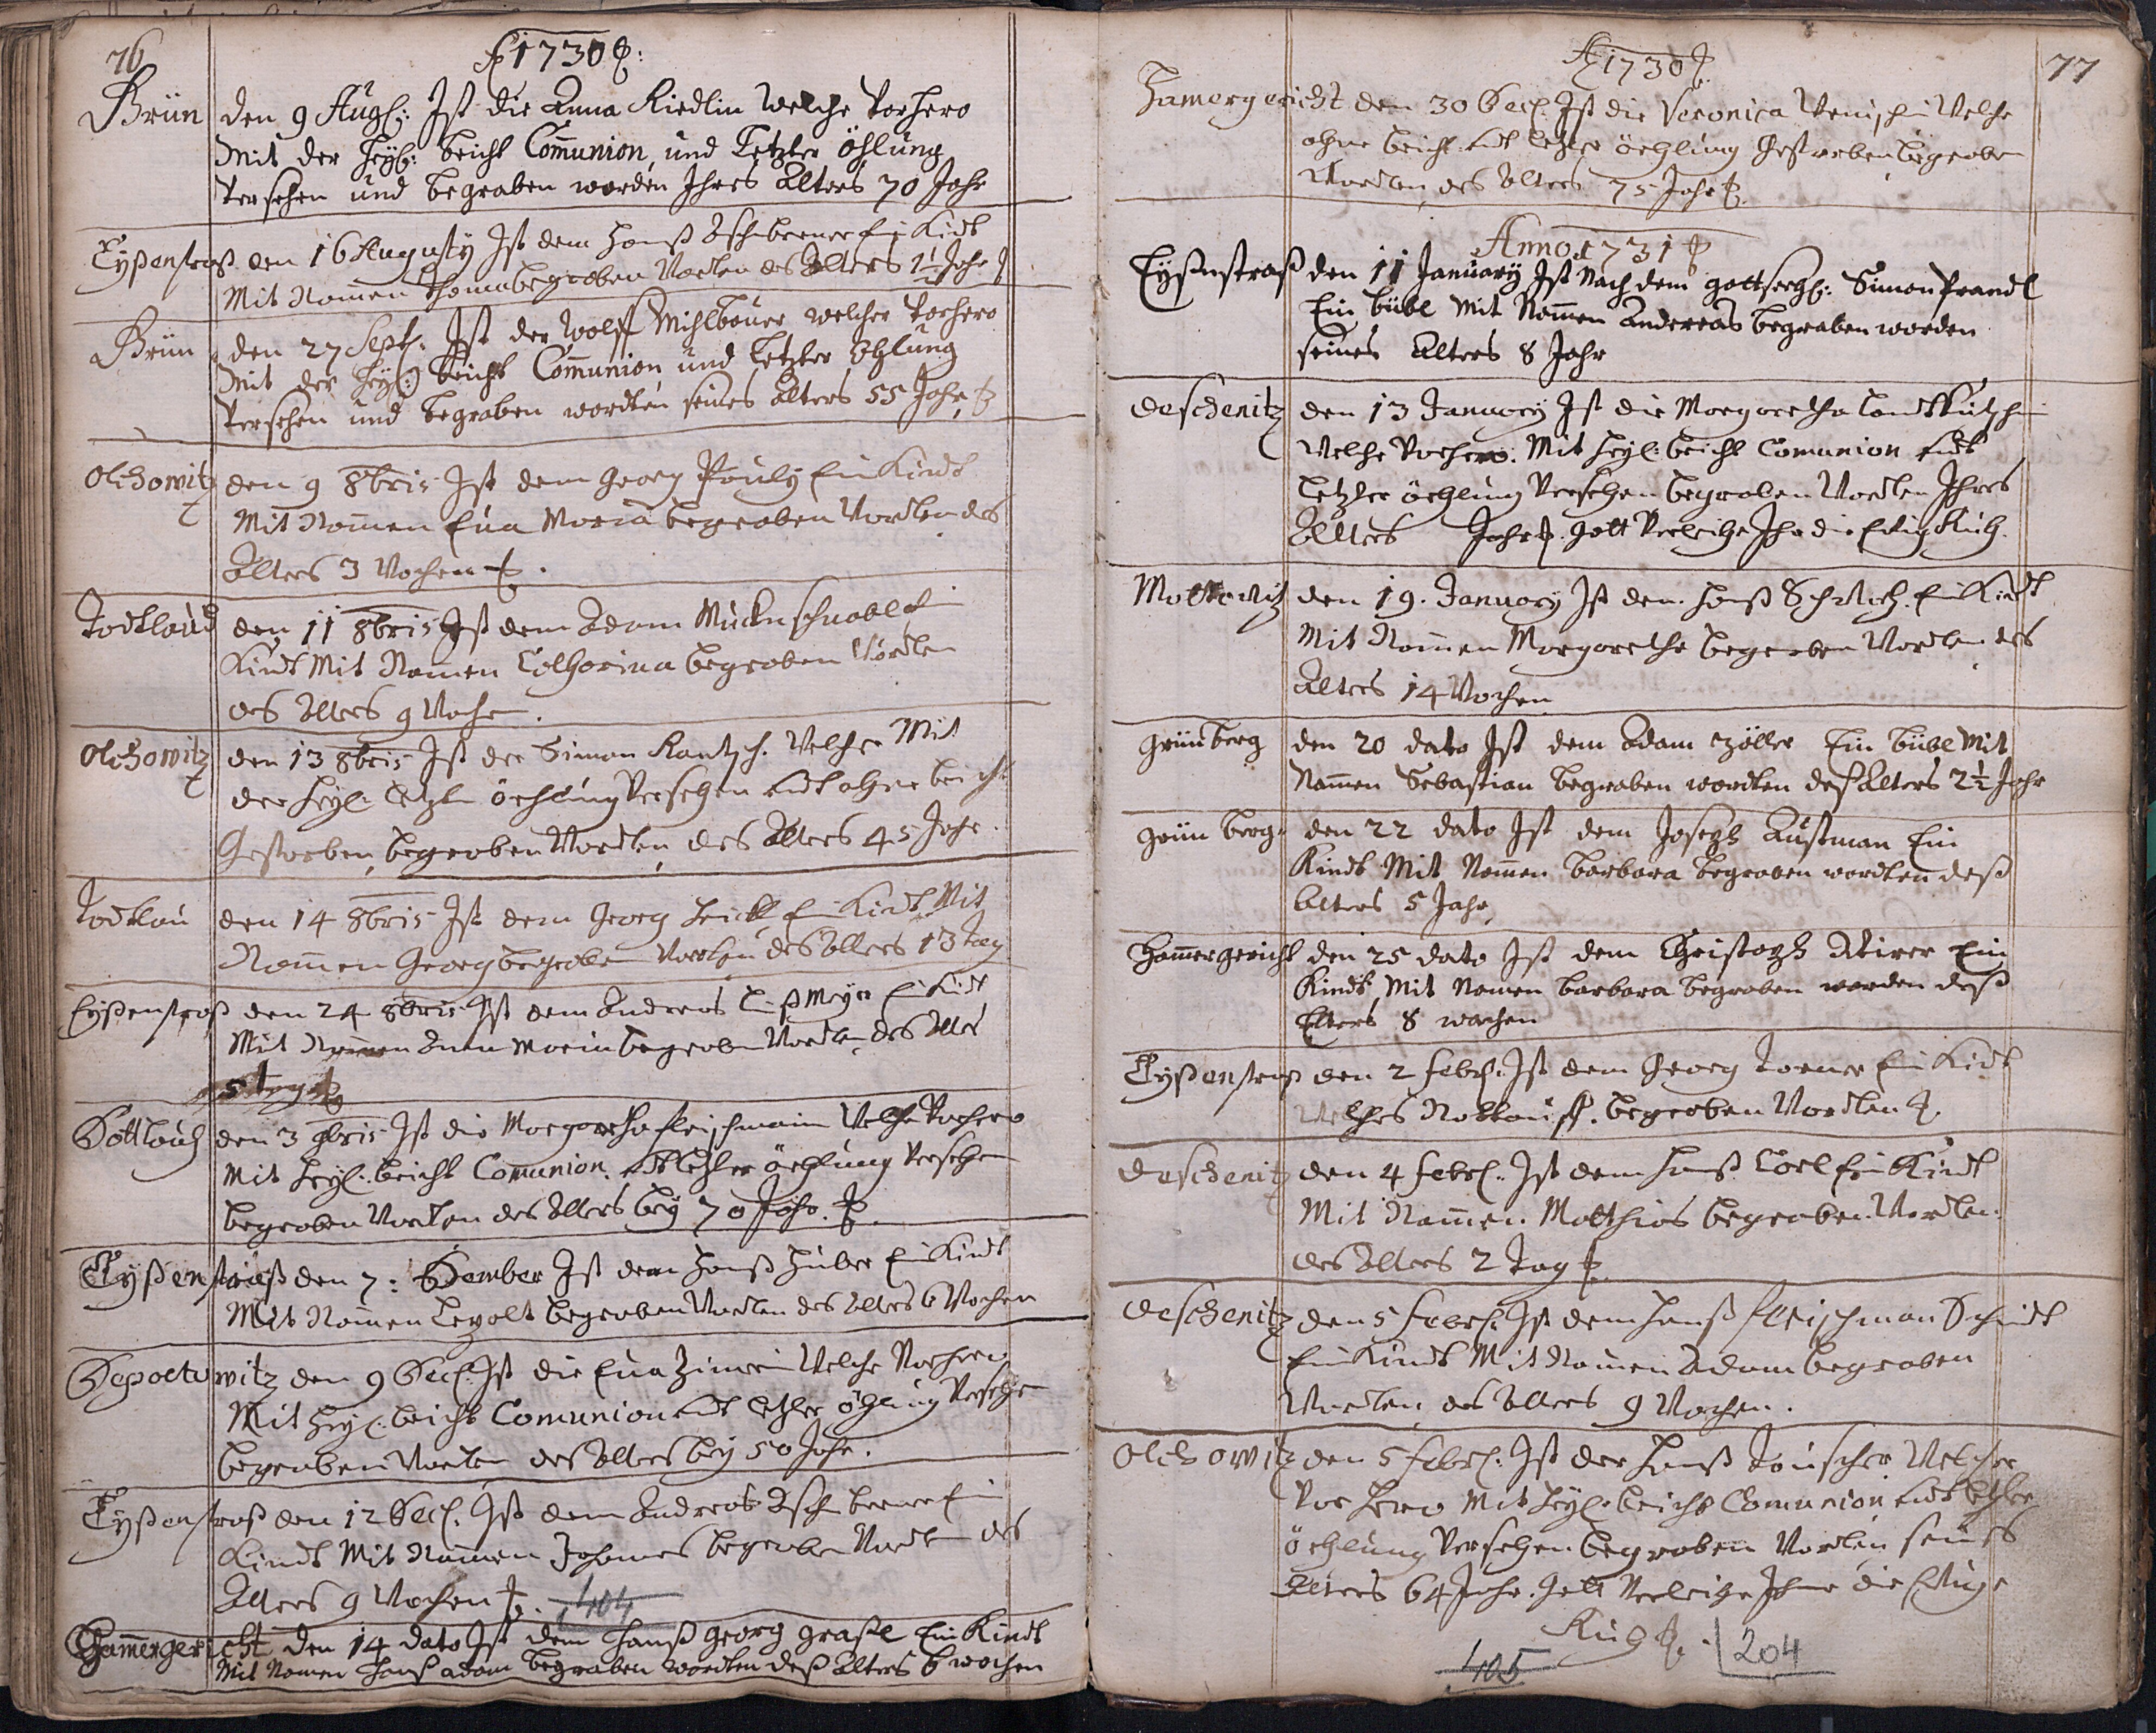 76
A 1730
Brün den 9 Aug: Ist die Anna Riedlin welche vorhero
Mit der Heyl: beicht Com̄union, und Letzter öhlung
versehen und begraben worden Ihres Alters 70 Jahr
Eyßenstraß den 16 Augusty Ist dem Hanß Ein Kindt
Mit Namen begraben Worden des Alters Jahr
Brün den 27 Sept: Ist der Wolff Mihlbauer welcher vorhero
Mit der Heyl: beicht Com̄union und Letzter öhlung
versehen und begraben wordten seines alters 55 Jahr
Olchowitz den 9 8bris Ist dem Georg Pauly Ein Kindt
Mit Nam̄en Eua Maria begraben Wordten des
Alters 3 Wochen
den 11 8bris Ist dem Adam Mucknschnabl Ein
Kindt Mit Namen Catharina begraben Wordten
des Alters 9 Woche
Olchowitz den 13 8bris Ist der Simon Welcher Mit
der Heyl: Letzten öehlung Versehen undt ohne beicht
Gestorben, begraben Wordten, des Alters 45 Jahr
den 14 8bris Ist dem Georg Ein Kindt Mit
Nam̄en Georg begraben Worden des Alters 13 Tag
Eyßenstraß den 24 8bris Ist dem Andreas Ein Kindt
Mit Nam̄en Anna Maria begraben Wordten des Alters
5 tag
den 3 9bris Ist die Margaretha Fleischmanin Welche Vorhero
Mit Heyl: beicht Comunion undt letzter öehlung Versehen
begraben Wordten des Alters bey 70 Jahr
Eyßenstraß den 7: Ist dem Hanß Huber Ein Kindt
Mit Nam̄en begraben Wordten des Alters 6 Wochen
Depoltowitz den 9 Dec: Ist die Eua Welche Vorhero
Mit Heyl: beicht Comunion undt letzter öhlung Versehen
begraben Worden des Alters bey 50 Jahr.
Eyßenstraß den 12 Dec: Ist dem Andreas Ein
Kindt Mit Nam̄en Johannes begraben Wordten des
Alters 9 Wochen
404
Ham̄ergericht den 14 dato Ist dem Hanß georg graßl Ein Kindt
Mit Namen Hanß adam begraben wordten deß Alters 6 wochen
A 1730
77
Hamergericht den 30 Dec: Ist die Veronica Welche
ohne beicht undt letzter öehlung Gestorben, begraben
Wordten, des Alters 75 Jahr
Anno 1731
Eyßenstraß den 11 January Ist Nach dem gottseel: Simon Prandl
Ein bübl Mit Nam̄en Andereas begraben worden
seines Alters 8 Jahr
Deschenitz den 13 January Ist die Margaretha
Welche Vorhero Mit Heyl: beicht Comunion undt
Letzter öehlung Versehen begraben Wordten Ihres
Alters Jahr. Gott Verleihe Ihr die Ewig Ruh.
den 19. January Ist dem Hanß Ein Kindt
Mit Nam̄en Margaretha begraben Wordten des
Alters 14 Wochen
Grünberg den 20 dato Ist dem Adam Zöller Ein bübl Mit
Nam̄en Sebastian begraben wordten deß Alters 2½ Jahr
Grünberg den 22 dato Ist dem Joseph Augustman Ein
Kindt Mit Nam̄en Barbara begraben wordten deß
Alters 5 Jahr
Ham̄ergericht den 25 dato Ist dem Christoph Ein
Kindt Mit Namen Barbara begraben worden deß
Elters 8 wochen
Eyßenstraß den 2 Febr: Ist dem Georg Ein Kindt
Welches begraben Wordten
Deschenitz den 4 Febr: Ist dem Hanß Ein Kindt
Mit Nam̄en Matthias begraben Wordten
des Alters 2 Tag
Deschenitz den 5 Febr: Ist dem Hanß Fleischman
Ein Kindt Mit Nam̄en Adam begraben
Wordten des Alters 9 Wochen.
Olchowitz den 5 Febr: Ist der Hanß Tauscher Welcher
Vorhero Mit Heyl: beicht Comunion undt letzter
öehlung Versehen begraben Wordten seines
Alters 64 Jahr. Gott Verleihe Ihme die Ewige
Ruh
204
405